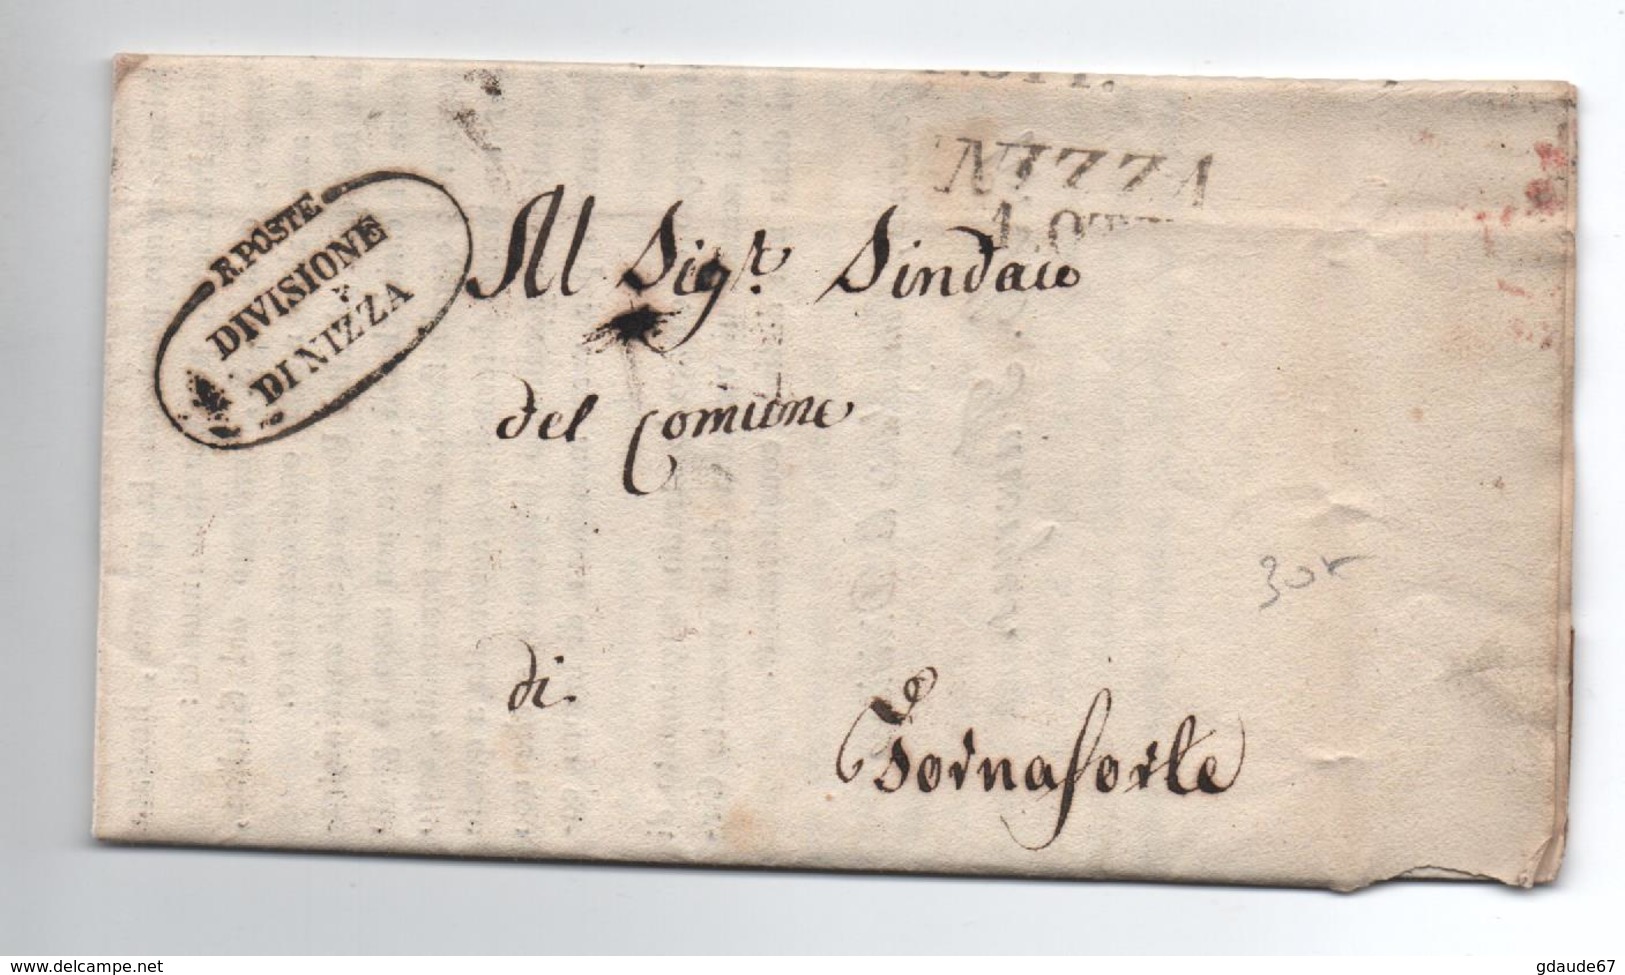 R. POSTE
DIVISIONE
DI NIZZA
NIZZA
Al Sigr. Sindaco
del Comune
di
Tornaforte
30
www.delcampe.net
gdaude67